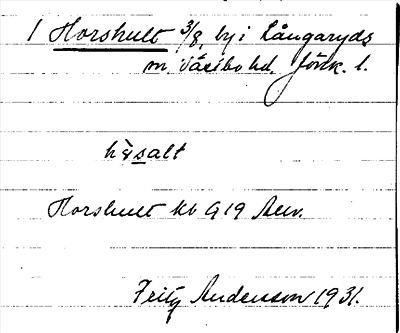 1 Horshult 3/8, by i Långaryds
sn. Västbo hd. Jönk. l.
hɷsalt
Horshult kb G 19 Rev.
Fritz Andersson 1931.